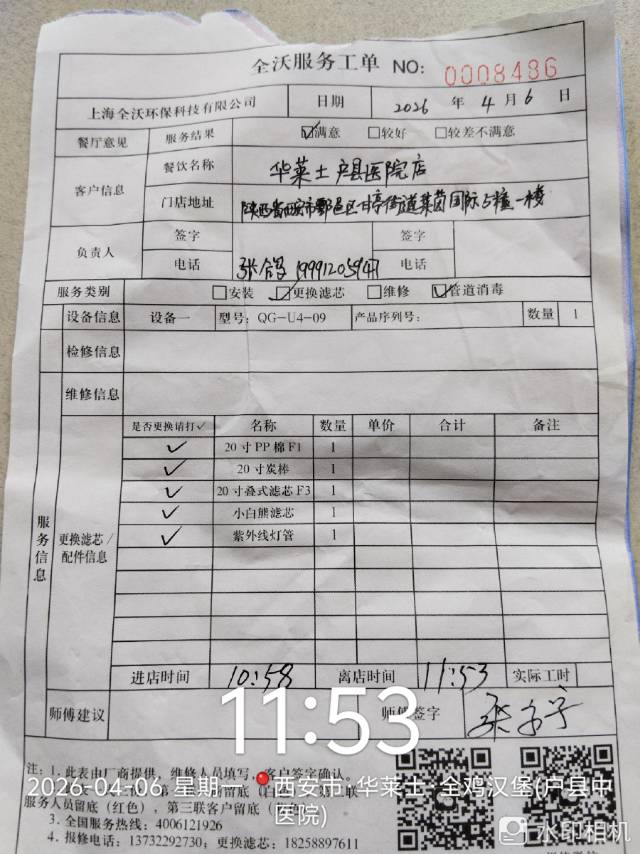 全沃服务工单 NO: 0008486
上海全沃环保科技有限公司 日期 2026 年 4 月 6 日
餐厅意见 服务结果 ☑满意 □较好 □较差不满意
客户信息 餐饮名称 华莱士户县医院店
门店地址 陕西省西安市鄠邑区甘亭街道莱茵国际5幢一楼
负责人 签字 签字
电话 张 电话
服务类别 □安装 ☑更换滤芯 □维修 ☑管道消毒
设备信息 设备一 型号: QG-U4-09 产品序列号: 数量 1
检修信息
维修信息
服务信息
更换滤芯/配件信息
是否更换请打✓ 名称 数量 单价 合计 备注
✓ 20寸PP棉F1 1
✓ 20寸炭棒 1
✓ 20寸叠式滤芯F3 1
✓ 小白熊滤芯 1
✓ 紫外线灯管 1
进店时间 10:58 离店时间 11:53 实际工时
师傅建议 师傅签字 张
11:53
注: 1. 此表由厂商提供, 维修人员填写, 客户签字确认。
2026-04-06 星期一 西安市·华莱士·全鸡汉堡(户县中医院)
服务人员留底(红色), 第三联客户留底
3. 全国服务热线: 4006121926
4. 报修电话: 13732292730; 更换滤芯: 18258897611
水印相机